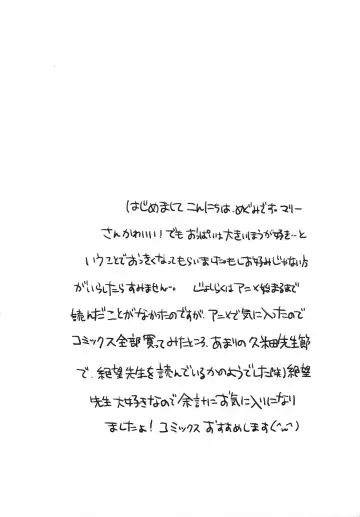 はじめまして こんにちは、めぐみです。マリー
さんかわいい！でもおっぱいは大きいほうが好き…と
いうことでおっきくなってもらいましたもしお好みじゃない方
がいらしたらすみません〜。 じょしらくはアニメ始まるまで
読んだことがなかたのですが、アニメで気に入ったので
コミックス全部買ってみたところ、あまりの久米田先生節
で、絶望先生を読んでいるかのようでした(笑)絶望
先生大好きなので余計にお気に入りになり
ましたよ！コミックス おすすめします(^ω^)